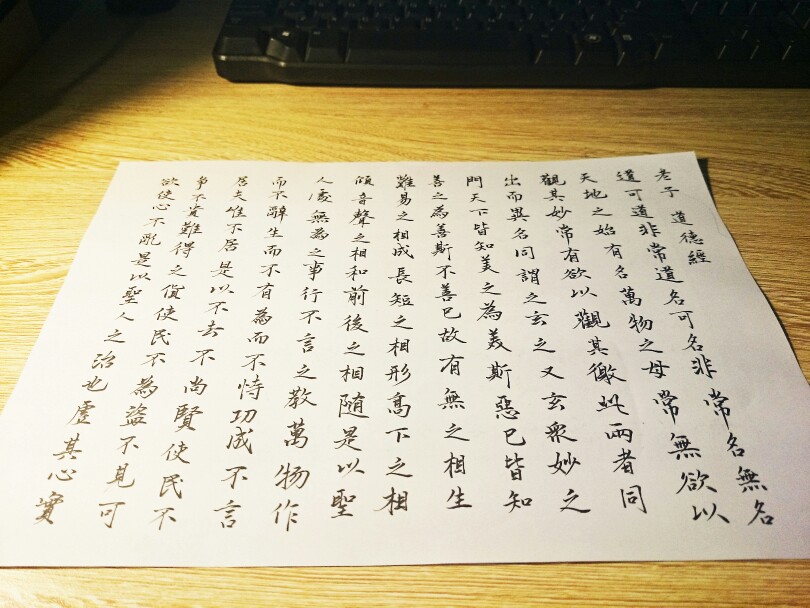 老子 道德經
道可道非常道名可名非常名無名
天地之始有名萬物之母常無欲以
觀其妙常有欲以觀其徼此兩者同
出而異名同謂之玄之又玄眾妙之
門天下皆知美之為美斯惡已皆知
善之為善斯不善已故有無之相生
難易之相成長短之相形高下之相
傾音聲之相和前後之相隨是以聖
人處無為之事行不言之教萬物作
而不辭生而不有為而不恃功成不言
居夫唯不居是以不去不尚賢使民不
爭不貴難得之貨使民不為盜不見可
欲使心不亂是以聖人之治也虛其心實